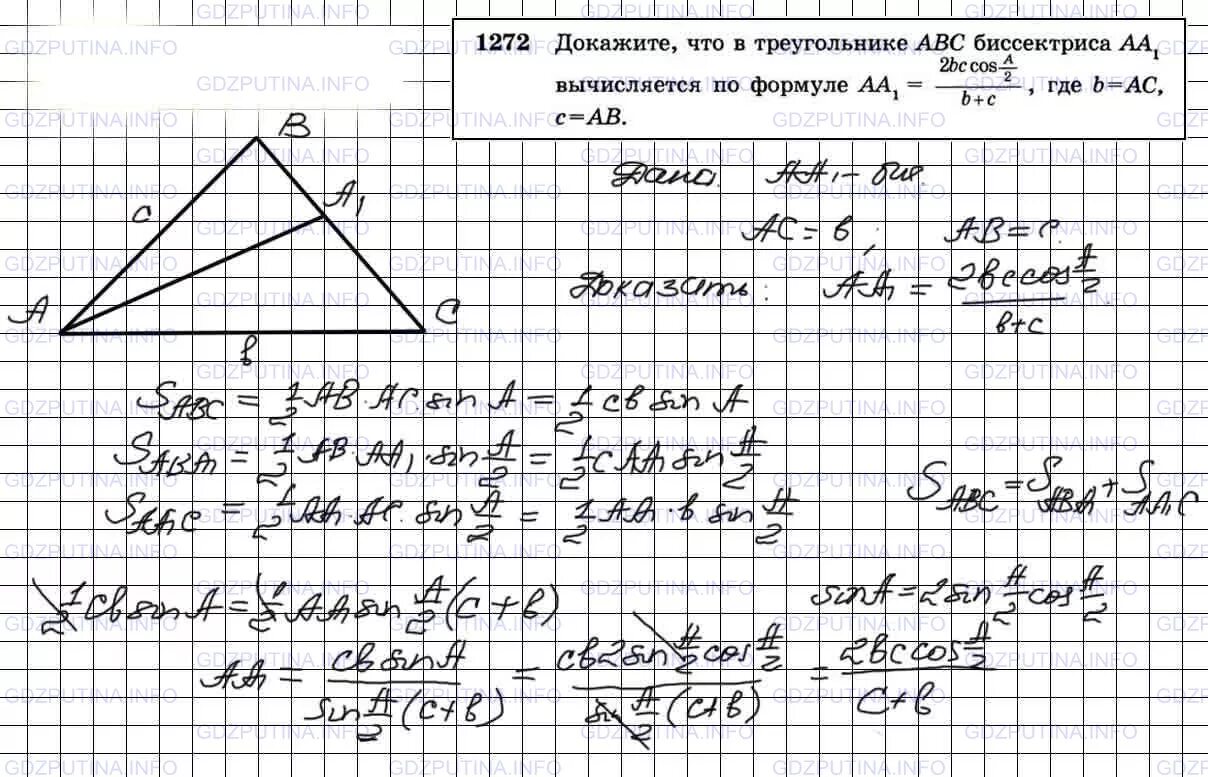 1272 Докажите, что в треугольнике ABC биссектриса AA₁
вычисляется по формуле AA₁ = 2bc cos A/2 / b+c, где b=AC,
c=AB.
B
A₁
c
A
C
b
Дано. AA₁ – бис.
AC = b; AB = c.
Доказать: AA₁ = 2bc cos A/2 / b+c
S ABC = 1/2 AB · AC · sin A = 1/2 cb sin A
S ABA₁ = 1/2 AB · AA₁ · sin A/2 = 1/2 c AA₁ sin A/2
S AA₁C = 1/2 AA₁ · AC · sin A/2 = 1/2 AA₁ · b sin A/2
S ABC = S ABA₁ + S AA₁C
1/2 cb sin A = 1/2 AA₁ sin A/2 (c + b)
sin A = 2 sin A/2 cos A/2
AA₁ = cb sin A / sin A/2 (c + b) = cb 2 sin A/2 cos A/2 / sin A/2 (c + b) = 2bc cos A/2 / c + b
GDZPUTINA.INFO